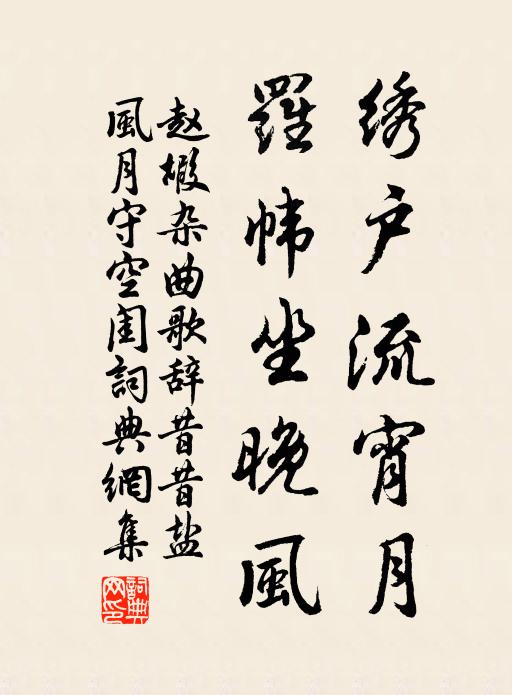 绣户流宵月
羅帏坐晚風
赵椵杂曲歌辞昔昔盐
風月守空闺詞典網集
詞典網印